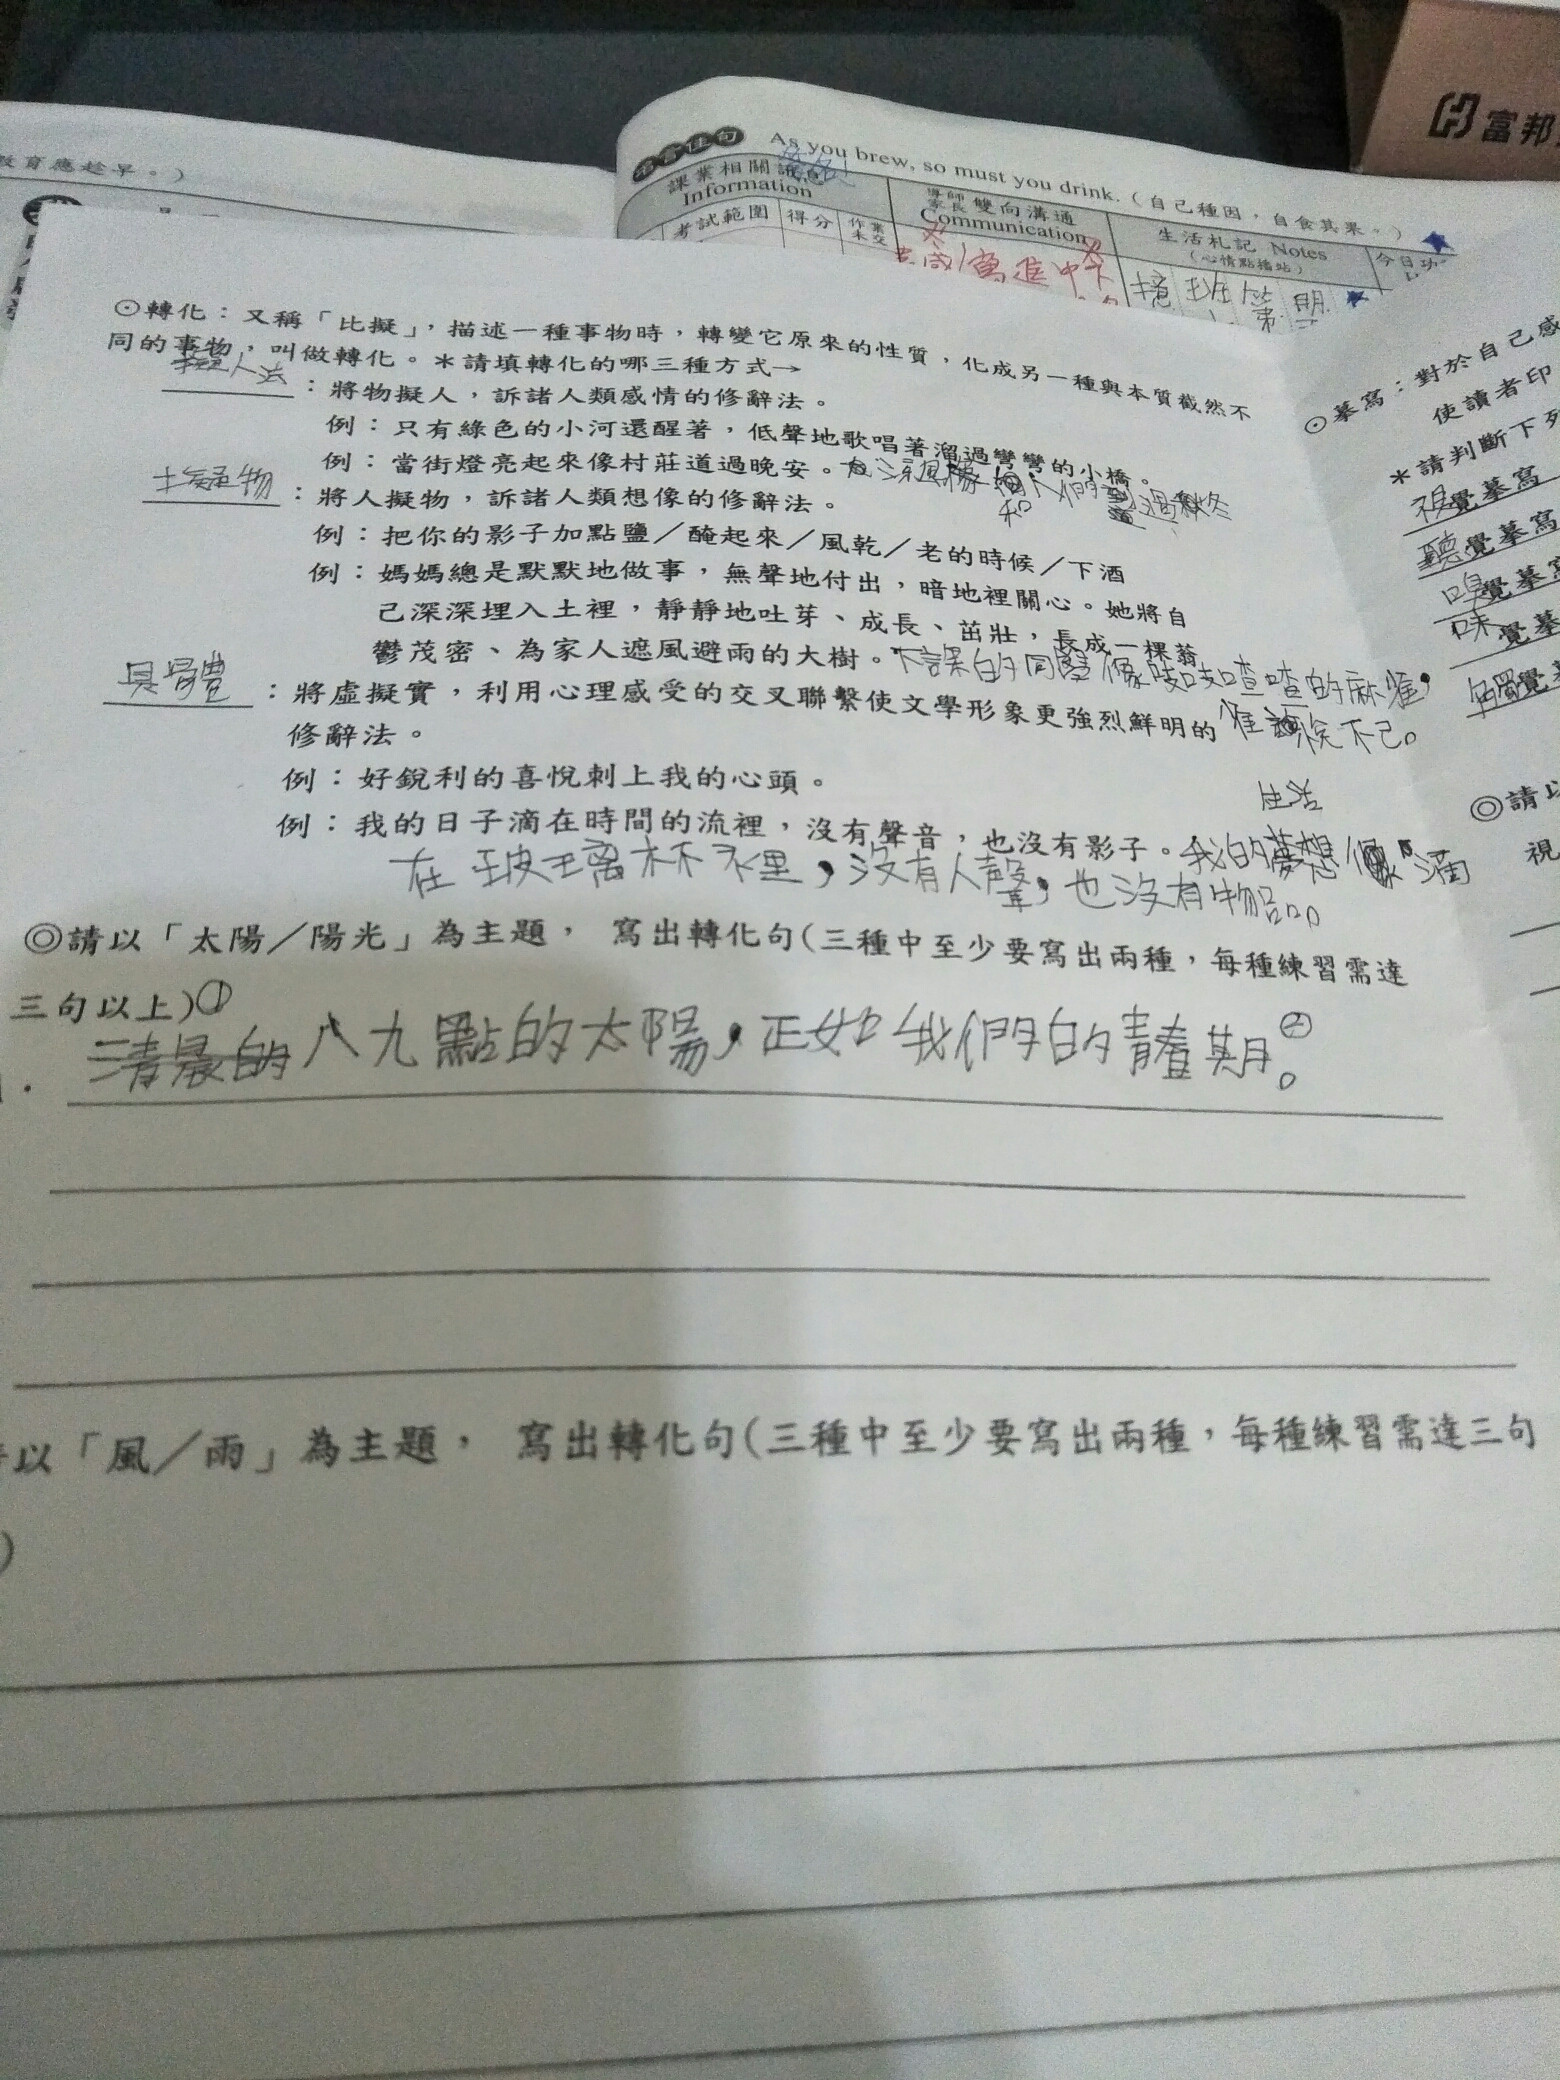 教育應趁早。）
名言佳句 As you brew, so must you drink.（自己種因，自食其果。）
課業相關訊息
Information
導師
家長 雙向溝通
Communication
生活札記 Notes
（心情點播站）
考試範圍 得分 作業未交
富邦
⊙轉化：又稱「比擬」，描述一種事物時，轉變它原來的性質，化成另一種與本質截然不
同的事物，叫做轉化。＊請填轉化的哪三種方式→
擬人法：將物擬人，訴諸人類感情的修辭法。
例：只有綠色的小河還醒著，低聲地歌唱著溜過彎彎的小橋。
例：當街燈亮起來像村莊道過晚安。
擬物：將人擬物，訴諸人類想像的修辭法。
例：把你的影子加點鹽／醃起來／風乾／老的時候／下酒
例：媽媽總是默默地做事，無聲地付出，暗地裡關心。她將自
己深深埋入土裡，靜靜地吐芽、成長、茁壯，長成一棵蓊
鬱茂密、為家人遮風避雨的大樹。下課的同學像吱吱喳喳的麻雀，
：將虛擬實，利用心理感受的交叉聯繫使文學形象更強烈鮮明的
修辭法。
例：好銳利的喜悅刺上我的心頭。
生活
例：我的日子滴在時間的流裡，沒有聲音，也沒有影子。我的夢想像滴
在玻璃杯裡，沒有人聲，也沒有物品。
◎請以「太陽／陽光」為主題， 寫出轉化句(三種中至少要寫出兩種，每種練習需達
三句以上)①
清晨的八九點的太陽，正如我們的青春期。
以「風／雨」為主題， 寫出轉化句(三種中至少要寫出兩種，每種練習需達三句
)
⊙摹寫：對於自己感
使讀者印
＊請判斷下列
視覺摹寫
聽覺摹寫
嗅覺摹寫
味覺摹
觸覺摹
◎請以
視